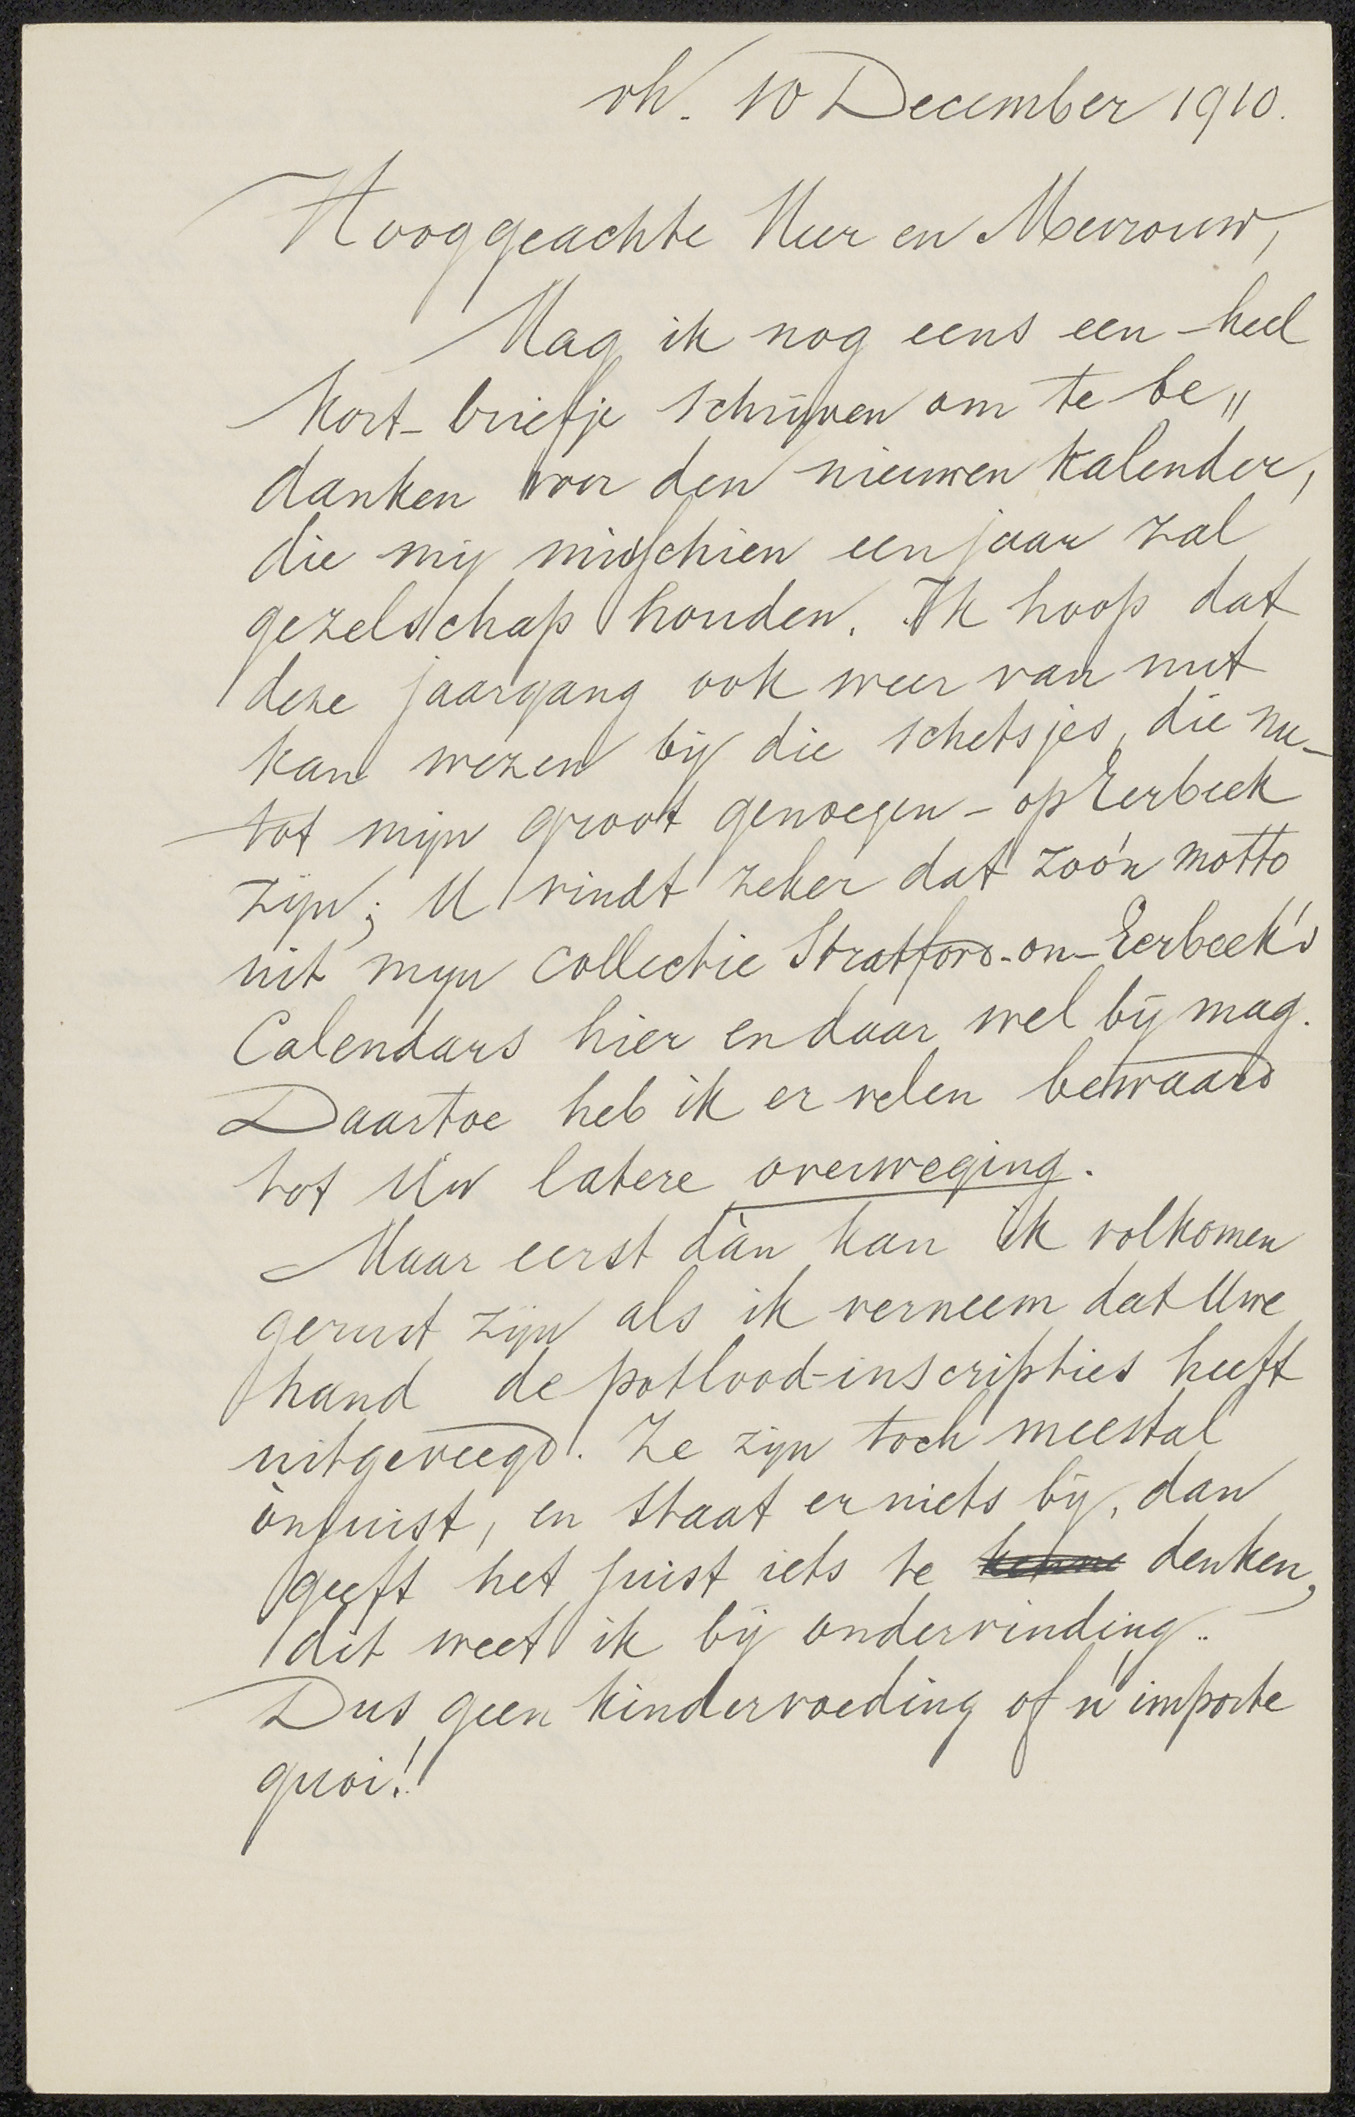 vh. 10 December 1910.
Hooggeachte Heer en Mevrouw,
Mag ik nog eens een – heel
kort – briefje schrijven om te be„
danken voor den nieuwen kalender,
die mij misschien een jaar zal
gezelschap houden. Ik hoop dat
deze jaargang ook weer van nut
kan wezen bij die schetsjes, die nu –
tot mijn groot genoegen – op Eerbeek
zijn; U vindt zeker dat zoo'n motto
uit mijn collectie Stratford-on-Eerbeek's
Calendars hier en daar wel bij mag.
Daartoe heb ik er velen bewaard
tot Uw latere overweging.
Maar eerst dàn kan ik volkomen
gerust zijn als ik verneem dat Uwe
hand de potlood-inscripties heeft
uitgeveegd. Ze zijn toch meestal
ònjuist, en staat er niets bij, dan
geeft het juist iets te denken,
dit weet ik bij ondervinding..
Dus geen kindervoeding of n'importe
quoi!